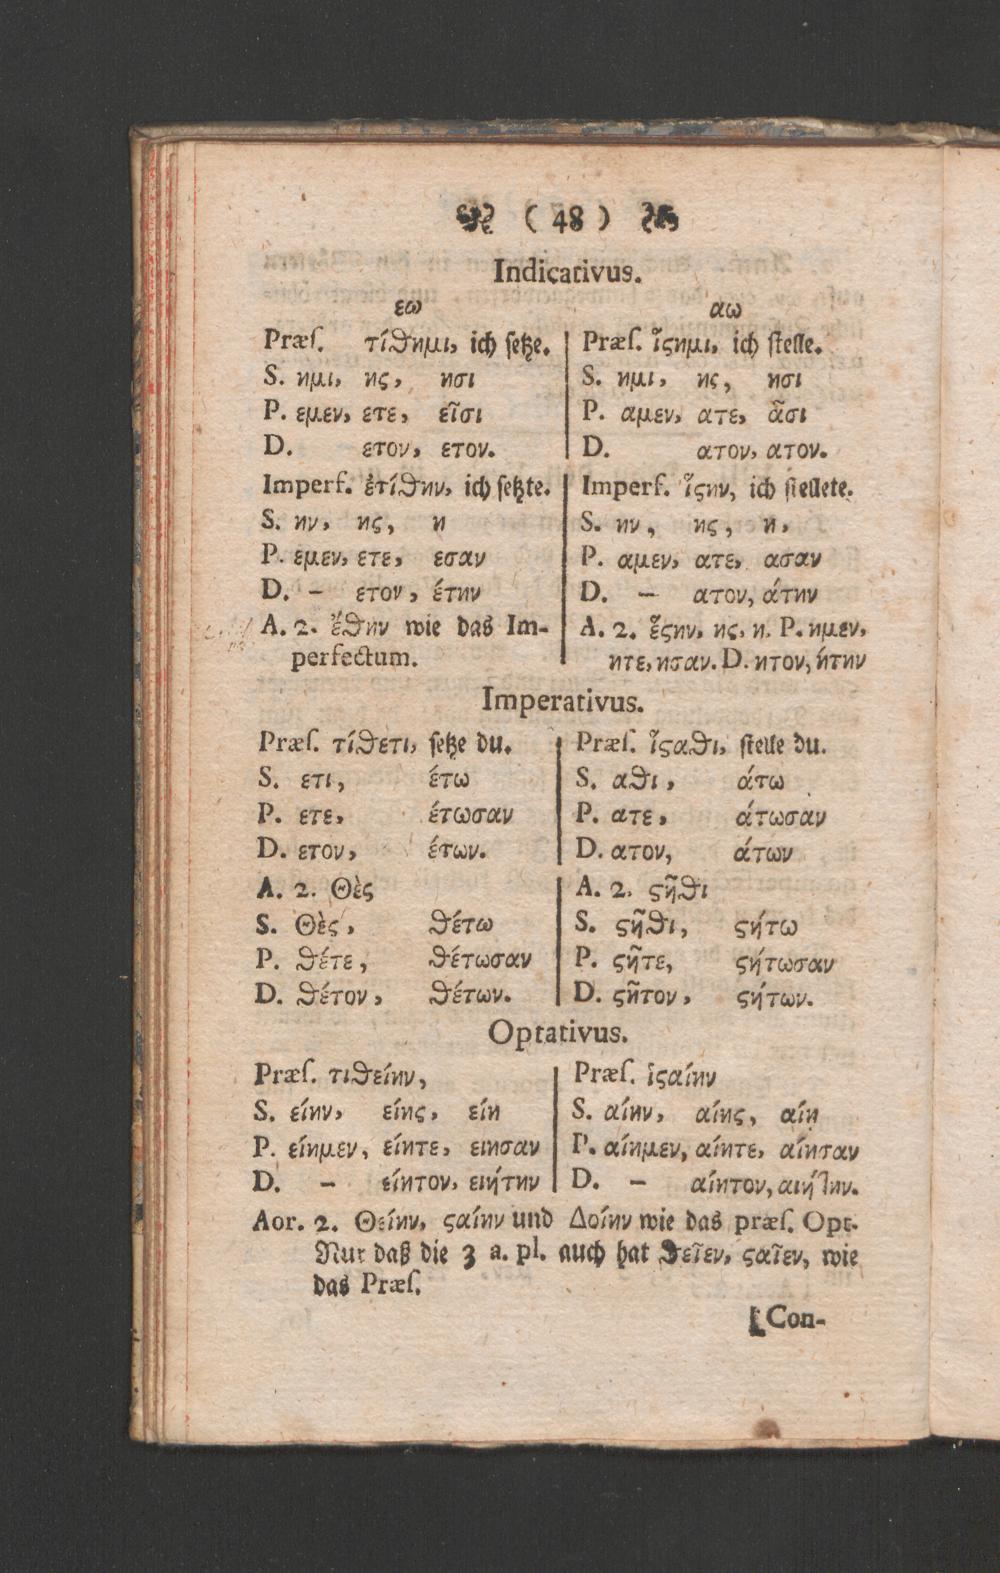 ( 48 )
Indicativus.
εω
Præſ. τίθημι, ich ſetze.
S. ημι, ης, ησι
P. εμεν, ετε, εῖσι
D. ετον, ετον.
Imperf. ἐτίθην, ich ſetzte.
S. ην, ης, η
P. εμεν, ετε, εσαν
D. – ετον, έτην
A. 2. ἔθην wie das Im-
perfectum.
αω
Præſ. ἵϛημι, ich ſtelle.
S. ημι, ης, ησι
P. αμεν, ατε, ᾶσι
D. ατον, ατον.
Imperf. ἵϛην, ich ſtellete.
S. ην, ης, η,
P. αμεν, ατε, ασαν
D. – ατον, άτην
A. 2. ἔϛην, ης, η. P. ημεν,
ητε, ησαν. D. ητον, ήτην
Imperativus.
Præſ. τίθετι, ſetze du.
S. ετι, έτω
P. ετε, έτωσαν
D. ετον, έτων.
A. 2. Θὲς
S. Θὲς, θέτω
P. θέτε, θέτωσαν
D. θέτον, θέτων.
Præſ. ἵϛαθι, ſtelle du.
S. αθι, άτω
P. ατε, άτωσαν
D. ατον, άτων
A. 2. ϛῆθι
S. ϛῆθι, ϛήτω
P. ϛῆτε, ϛήτωσαν
D. ϛῆτον, ϛήτων.
Optativus.
Præſ. τιθείην,
S. είην, είης, είη
P. είημεν, είητε, ειησαν
D. – είητον, ειήτην
Præſ. ἱϛαίην
S. αίην, αίης, αίη
P. αίημεν, αίητε, αίησαν
D. – αίητον, αιήτην.
Aor. 2. Θείην, ϛαίην und Δοίην wie das præſ. Opt.
Nur daß die 3 a. pl. auch hat θεῖεν, ϛαῖεν, wie
das Præſ.
Con-